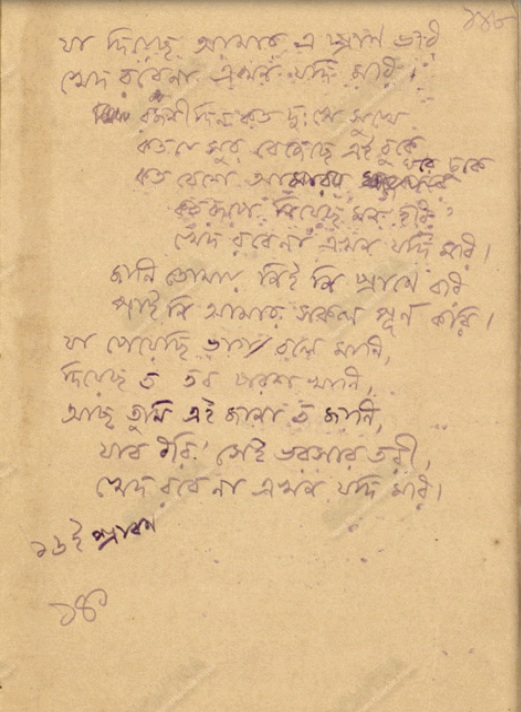 ১৪৮
যা দিয়েছ আমায় এ প্রাণ ভরি
খেদ রবেনা এখন যদি মরি।
রজনী দিন কত দুঃখে সুখে
কত যে সুর বেজেছে এই বুকে
কত বেশে আমার ঘরে ঢুকে
কত রূপে নিয়েছ মন হরি'
খেদ রবেনা এখন যদি মরি।
জানি তোমায় নিই নি প্রাণে বরি
পাই নি আমার সকল পূর্ণ করি।
যা পেয়েছি ভাগ্য বলে মানি,
দিয়েছ ত তব পরশ খানি,
আছ তুমি এই জানা ত জানি,
যাব ধরি' সেই ভরসার তরী,
খেদ রবে না এখন যদি মরি।
১৬ই শ্রাবণ